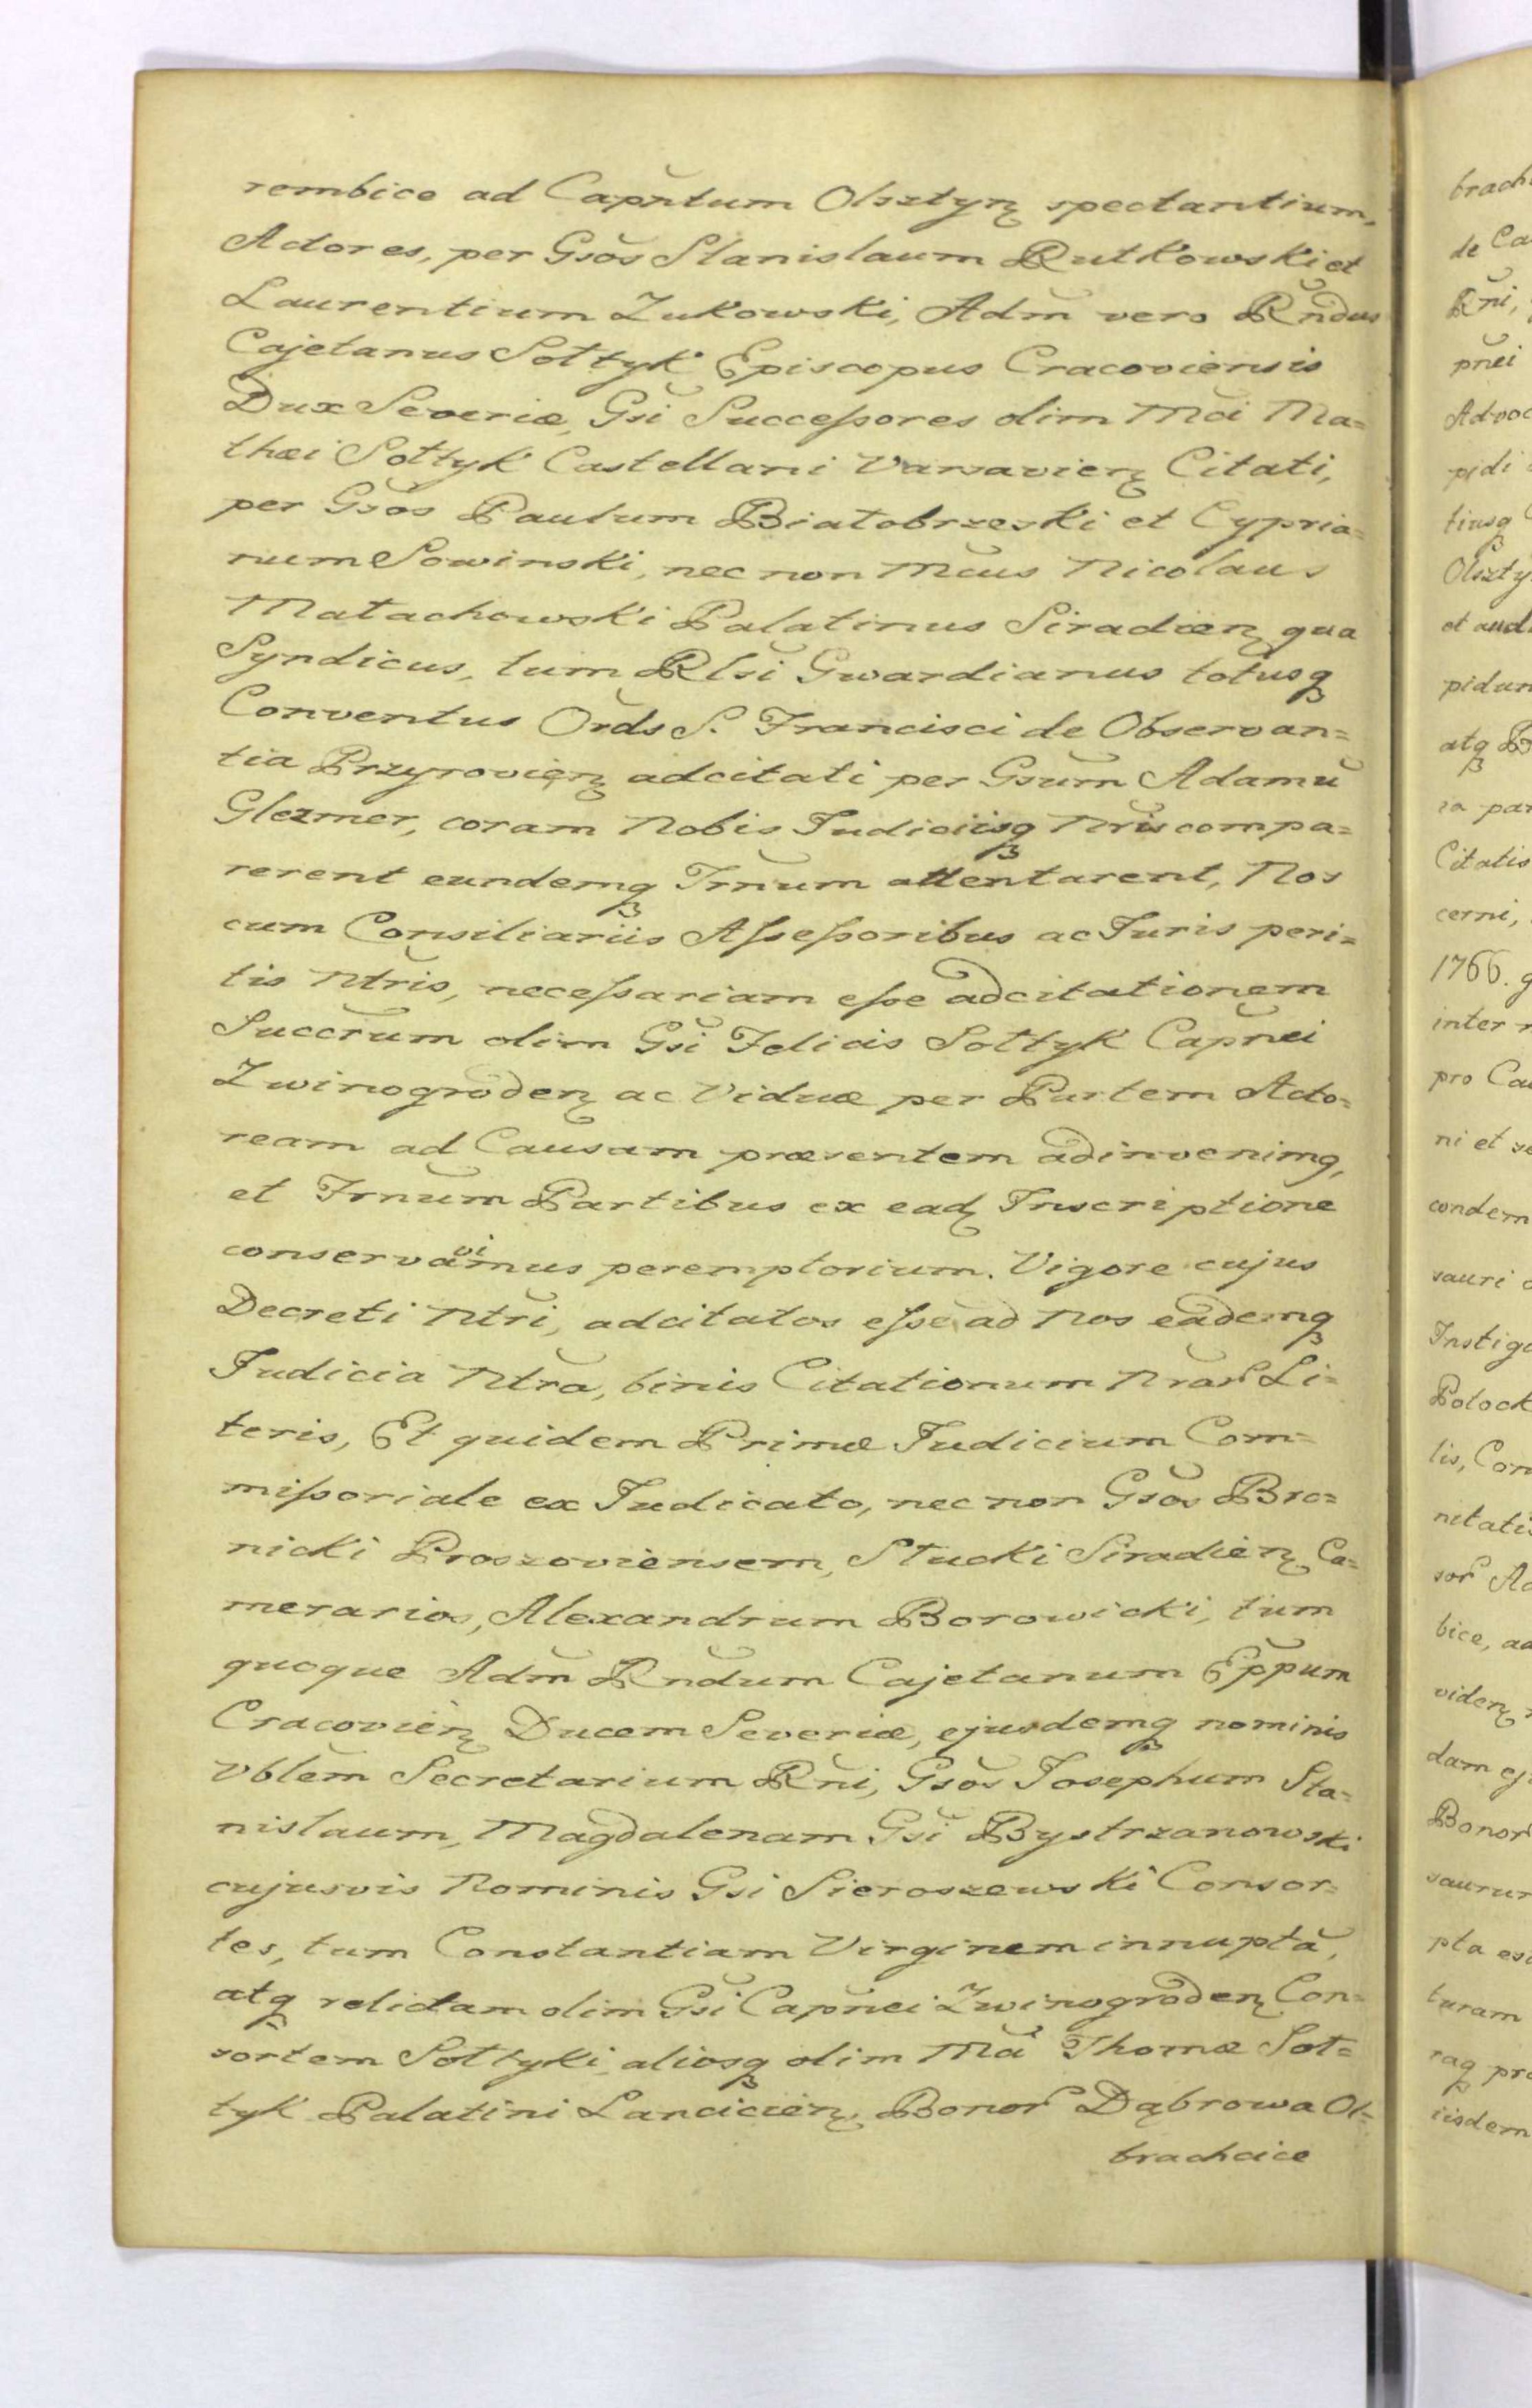 rembice ad Capñtum Olsztyn̨ spectantium,
Actores, per Gsos Stanislaum Rutkowski et
Laurentium Zukowski, Adm̃ vero Rñdus
Cajetanus Sołtyk Episcopus Cracoviensis
Dux Severiæ, Gsi Succeſsores olim Mci Ma=
thæi Sołtyk Castellani Varsavien̨ Citati,
per Gsos Paulum Białobrzeski et Cypria=
num Sowinski, nec non Mcus Nicolaus
Małachowski Palatinus Siradien̨ qua
Syndicus, tum Rlsi Gwardianus totusq
Conventus Ords S. Francisci de Observan=
tia Przyrovien̨ adcitati per Gsum Adamũ
Glezmer, coram Nobis Judiciisq Nris compa=
rerent eundemq Trnum attentarent, Nos
cum Consiliariis Aſseſsoribus ac Juris peri=
tis Ntris, neceſsariam eſse adcitationem
Succrum olim Gsi Felicis Sołtyk Capñei
Zwinogroden̨ ac Viduæ per Partem Acto=
ream ad Causam præsentem adinvenimq,
et Trnum Partibus ex ead Inscriptione
conservavimus peremptorium. Vigore cujus
Decreti Ntri, adcitatos eſse ad Nos eademq
Judicia Ntra, binis Citationum Nrar Li=
teris, Et quidem Primæ Judicium Com=
miſsoriale ex Judicato, nec non Gsos Bro=
nicki Proszoviensem, Słucki Siradien̨ Ca=
merarios, Alexandrum Borowicki, tum
quoque Adm̃ Rñdum Cajetanum Eppum
Cracovien̨ Ducem Severiæ, ejusdemq nominis
Vblem Secretarium Rñi, Gsos Josephum Sta=
nislaum, Magdalenam Gsi Bystrzanowski
cujusvis Nominis Gsi Sieroszewski Consor=
tes, tum Constantiam Virginem innuptã,
atq relictam olim Gsi Capñei Zwinogroden̨ Con=
sortem Sołtyki, aliosq olim Mci Thomæ Soł=
tyk Palatini Lancicien̨, Bonor Dąbrowa Ol=
brachcice
brach
de Ca
Rñi,
pñei
Advoc
pidi
tiusq
Olszty
et aud
pidum
atq
ia par
Citatis
cerni,
1766. q
inter
pro Cau
ni et
condem
sauri
Instiga
Potock
lis, Con
nitatis
sor Ac
bice, ad
viden̨
dam ej
Bonor
saurum
pta
turam
raq pro
iisdem